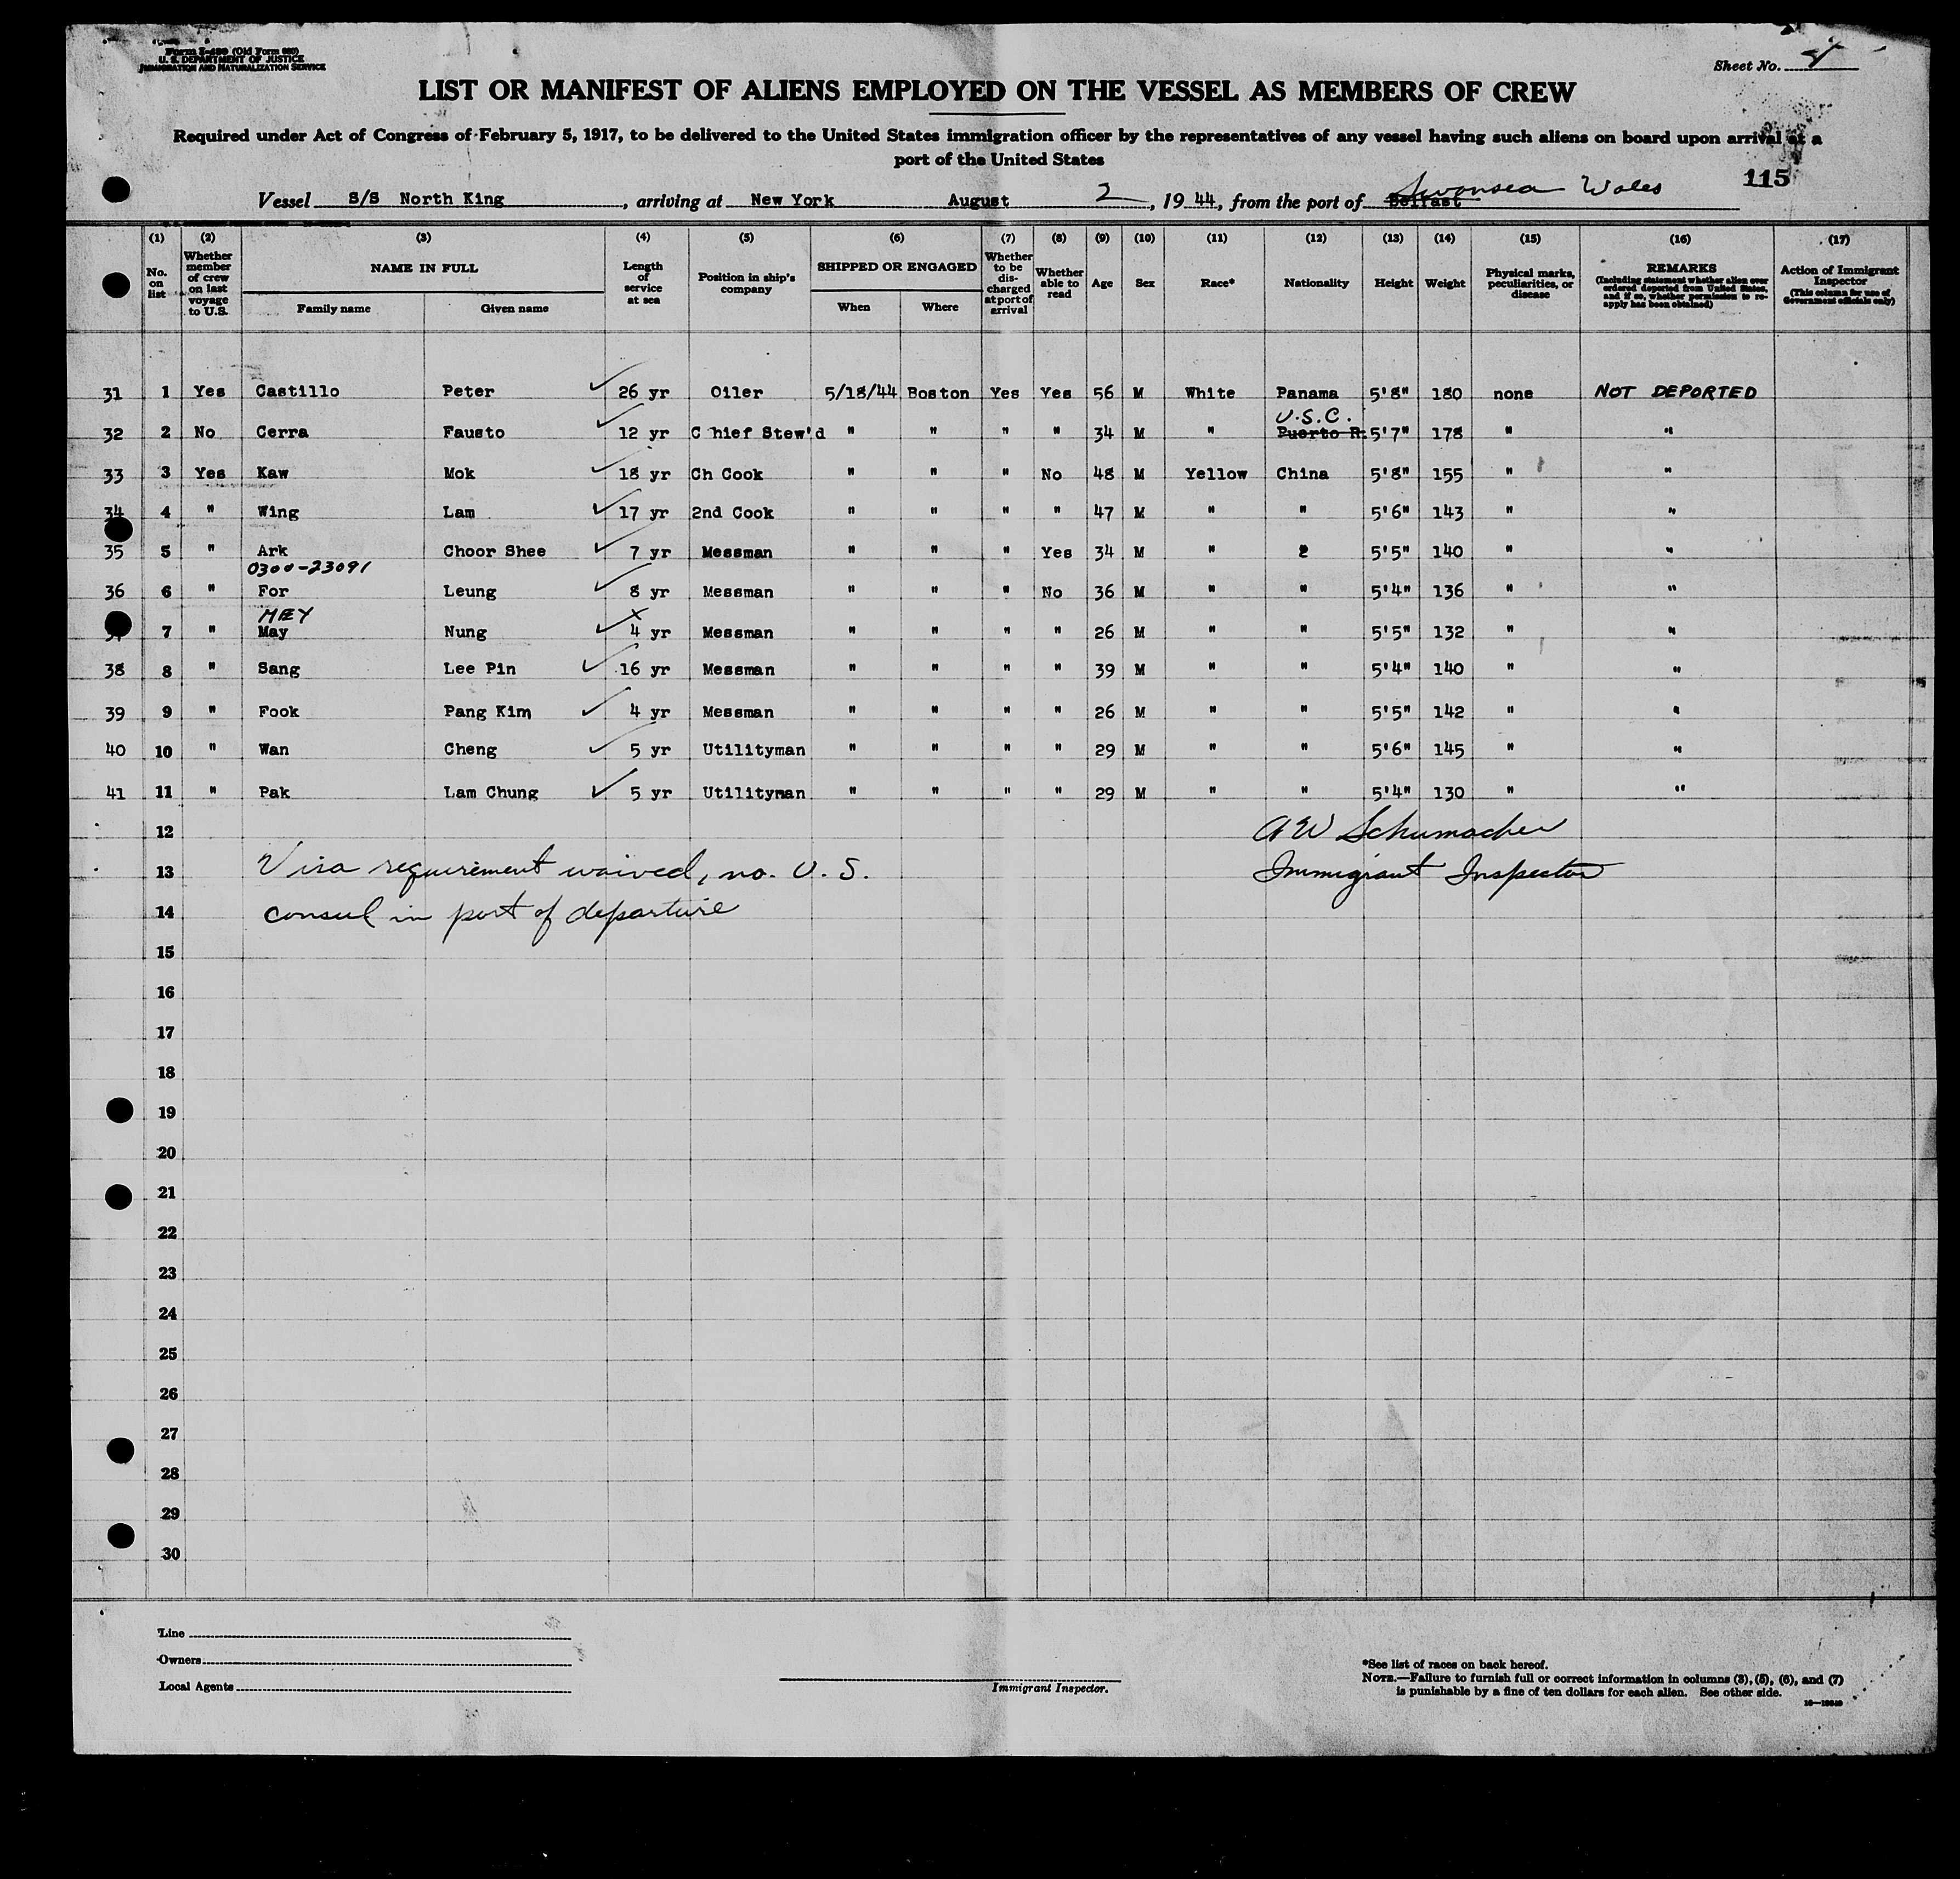 Form I-480 (Old Form 680)
U. S. DEPARTMENT OF JUSTICE
IMMIGRATION AND NATURALIZATION SERVICE
Sheet No.
LIST OR MANIFEST OF ALIENS EMPLOYED ON THE VESSEL AS MEMBERS OF CREW
Required under Act of Congress of February 5, 1917, to be delivered to the United States immigration officer by the representatives of any vessel having such aliens on board upon arrival at a
port of the United States
115
Vessel S/S North King, arriving at New York August 2, 1944, from the port of Belfast Swansea Wales
(1) (2) (3) (4) (5) (6) (7) (8) (9) (10) (11) (12) (13) (14) (15) (16) (17)
No. on list
Whether member of crew on last voyage to U.S.
NAME IN FULL
Family name Given name
Length of service at sea
Position in ship's company
SHIPPED OR ENGAGED
When Where
Whether to be discharged at port of arrival
Whether able to read
Age
Sex
Race*
Nationality
Height
Weight
Physical marks, peculiarities, or disease
REMARKS
(Including statement whether alien ever ordered deported from United States, and if so, whether permission to reapply has been obtained)
Action of Immigrant Inspector
(This column for use of Government officials only)
31 1 Yes Castillo Peter 26 yr Oiler 5/18/44 Boston Yes Yes 56 M White Panama 5'8" 180 none NOT DEPORTED
U.S.C.
32 2 No Cerra Fausto 12 yr C hief Stew'd " " " " 34 M " Puerto R. 5'7" 178 " "
33 3 Yes Kaw Mok 18 yr Ch Cook " " " No 48 M Yellow China 5'8" 155 " "
34 4 " Wing Lam 17 yr 2nd Cook " " " " 47 M " " 5'6" 143 " "
35 5 " Ark Choor Shee 7 yr Messman " " " Yes 34 M " " 5'5" 140 " "
0300-23091
36 6 " For Leung 8 yr Messman " " " No 36 M " " 5'4" 136 " "
MEY X
37 7 " May Nung 4 yr Messman " " " " 26 M " " 5'5" 132 " "
38 8 " Sang Lee Pin 16 yr Messman " " " " 39 M " " 5'4" 140 " "
39 9 " Fook Pang Kim 4 yr Messman " " " " 26 M " " 5'5" 142 " "
40 10 " Wan Cheng 5 yr Utilityman " " " " 29 M " " 5'6" 145 " "
41 11 " Pak Lam Chung 5 yr Utilityman " " " " 29 M " " 5'4" 130 " "
12 A W Schumacher
13 Visa requirement waived, no. U. S. Immigrant Inspector
14 consul in port of departure
15
16
17
18
19
20
21
22
23
24
25
26
27
28
29
30
Line
Owners
Local Agents
Immigrant Inspector.
*See list of races on back hereof.
NOTE.—Failure to furnish full or correct information in columns (3), (5), (6), and (7)
is punishable by a fine of ten dollars for each alien. See other side.